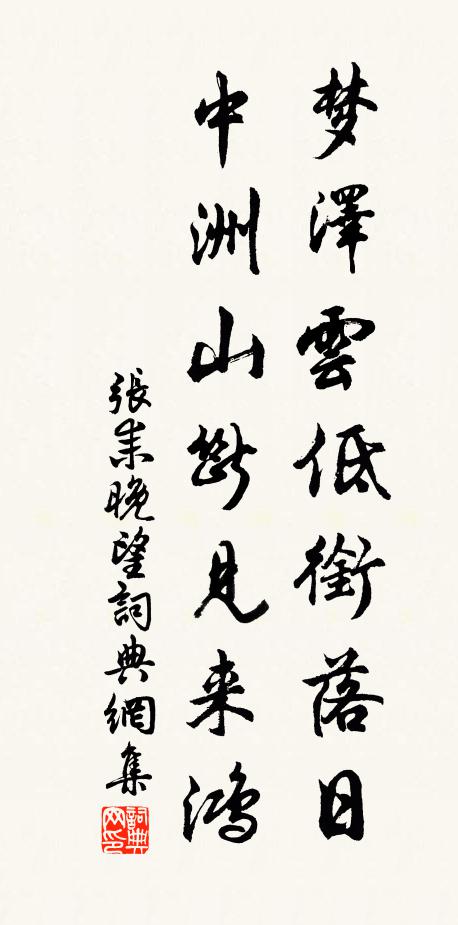 梦澤雲低銜落日
中洲山斷見来鴻
張耒晚望詞典網集
詞典网印